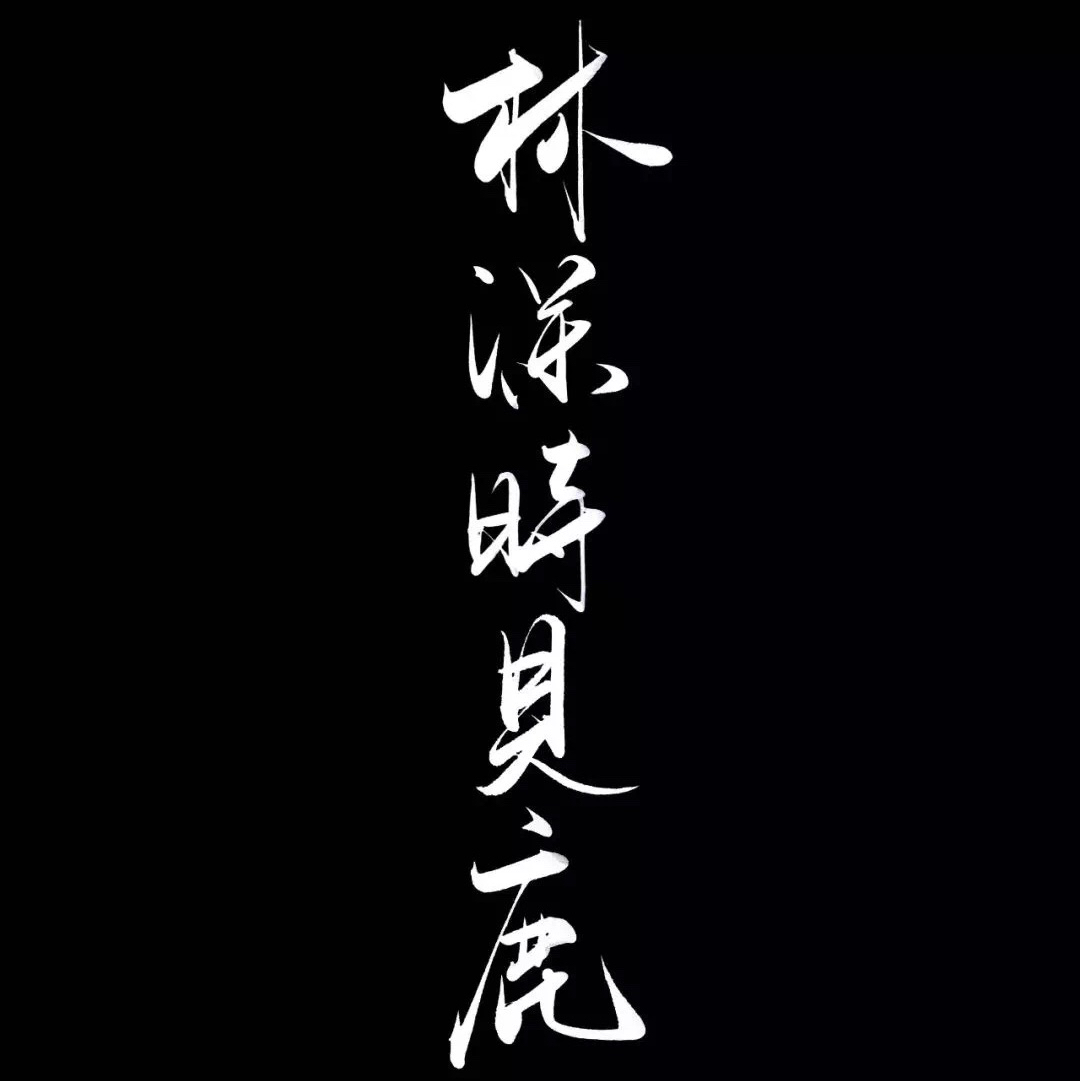 林深時見鹿